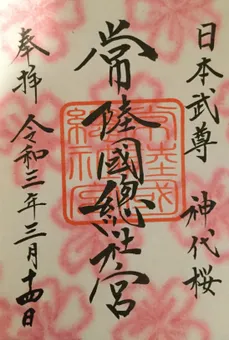 日本武尊 神代桜
常陸國總社宮
奉拝 令和三年三月十四日